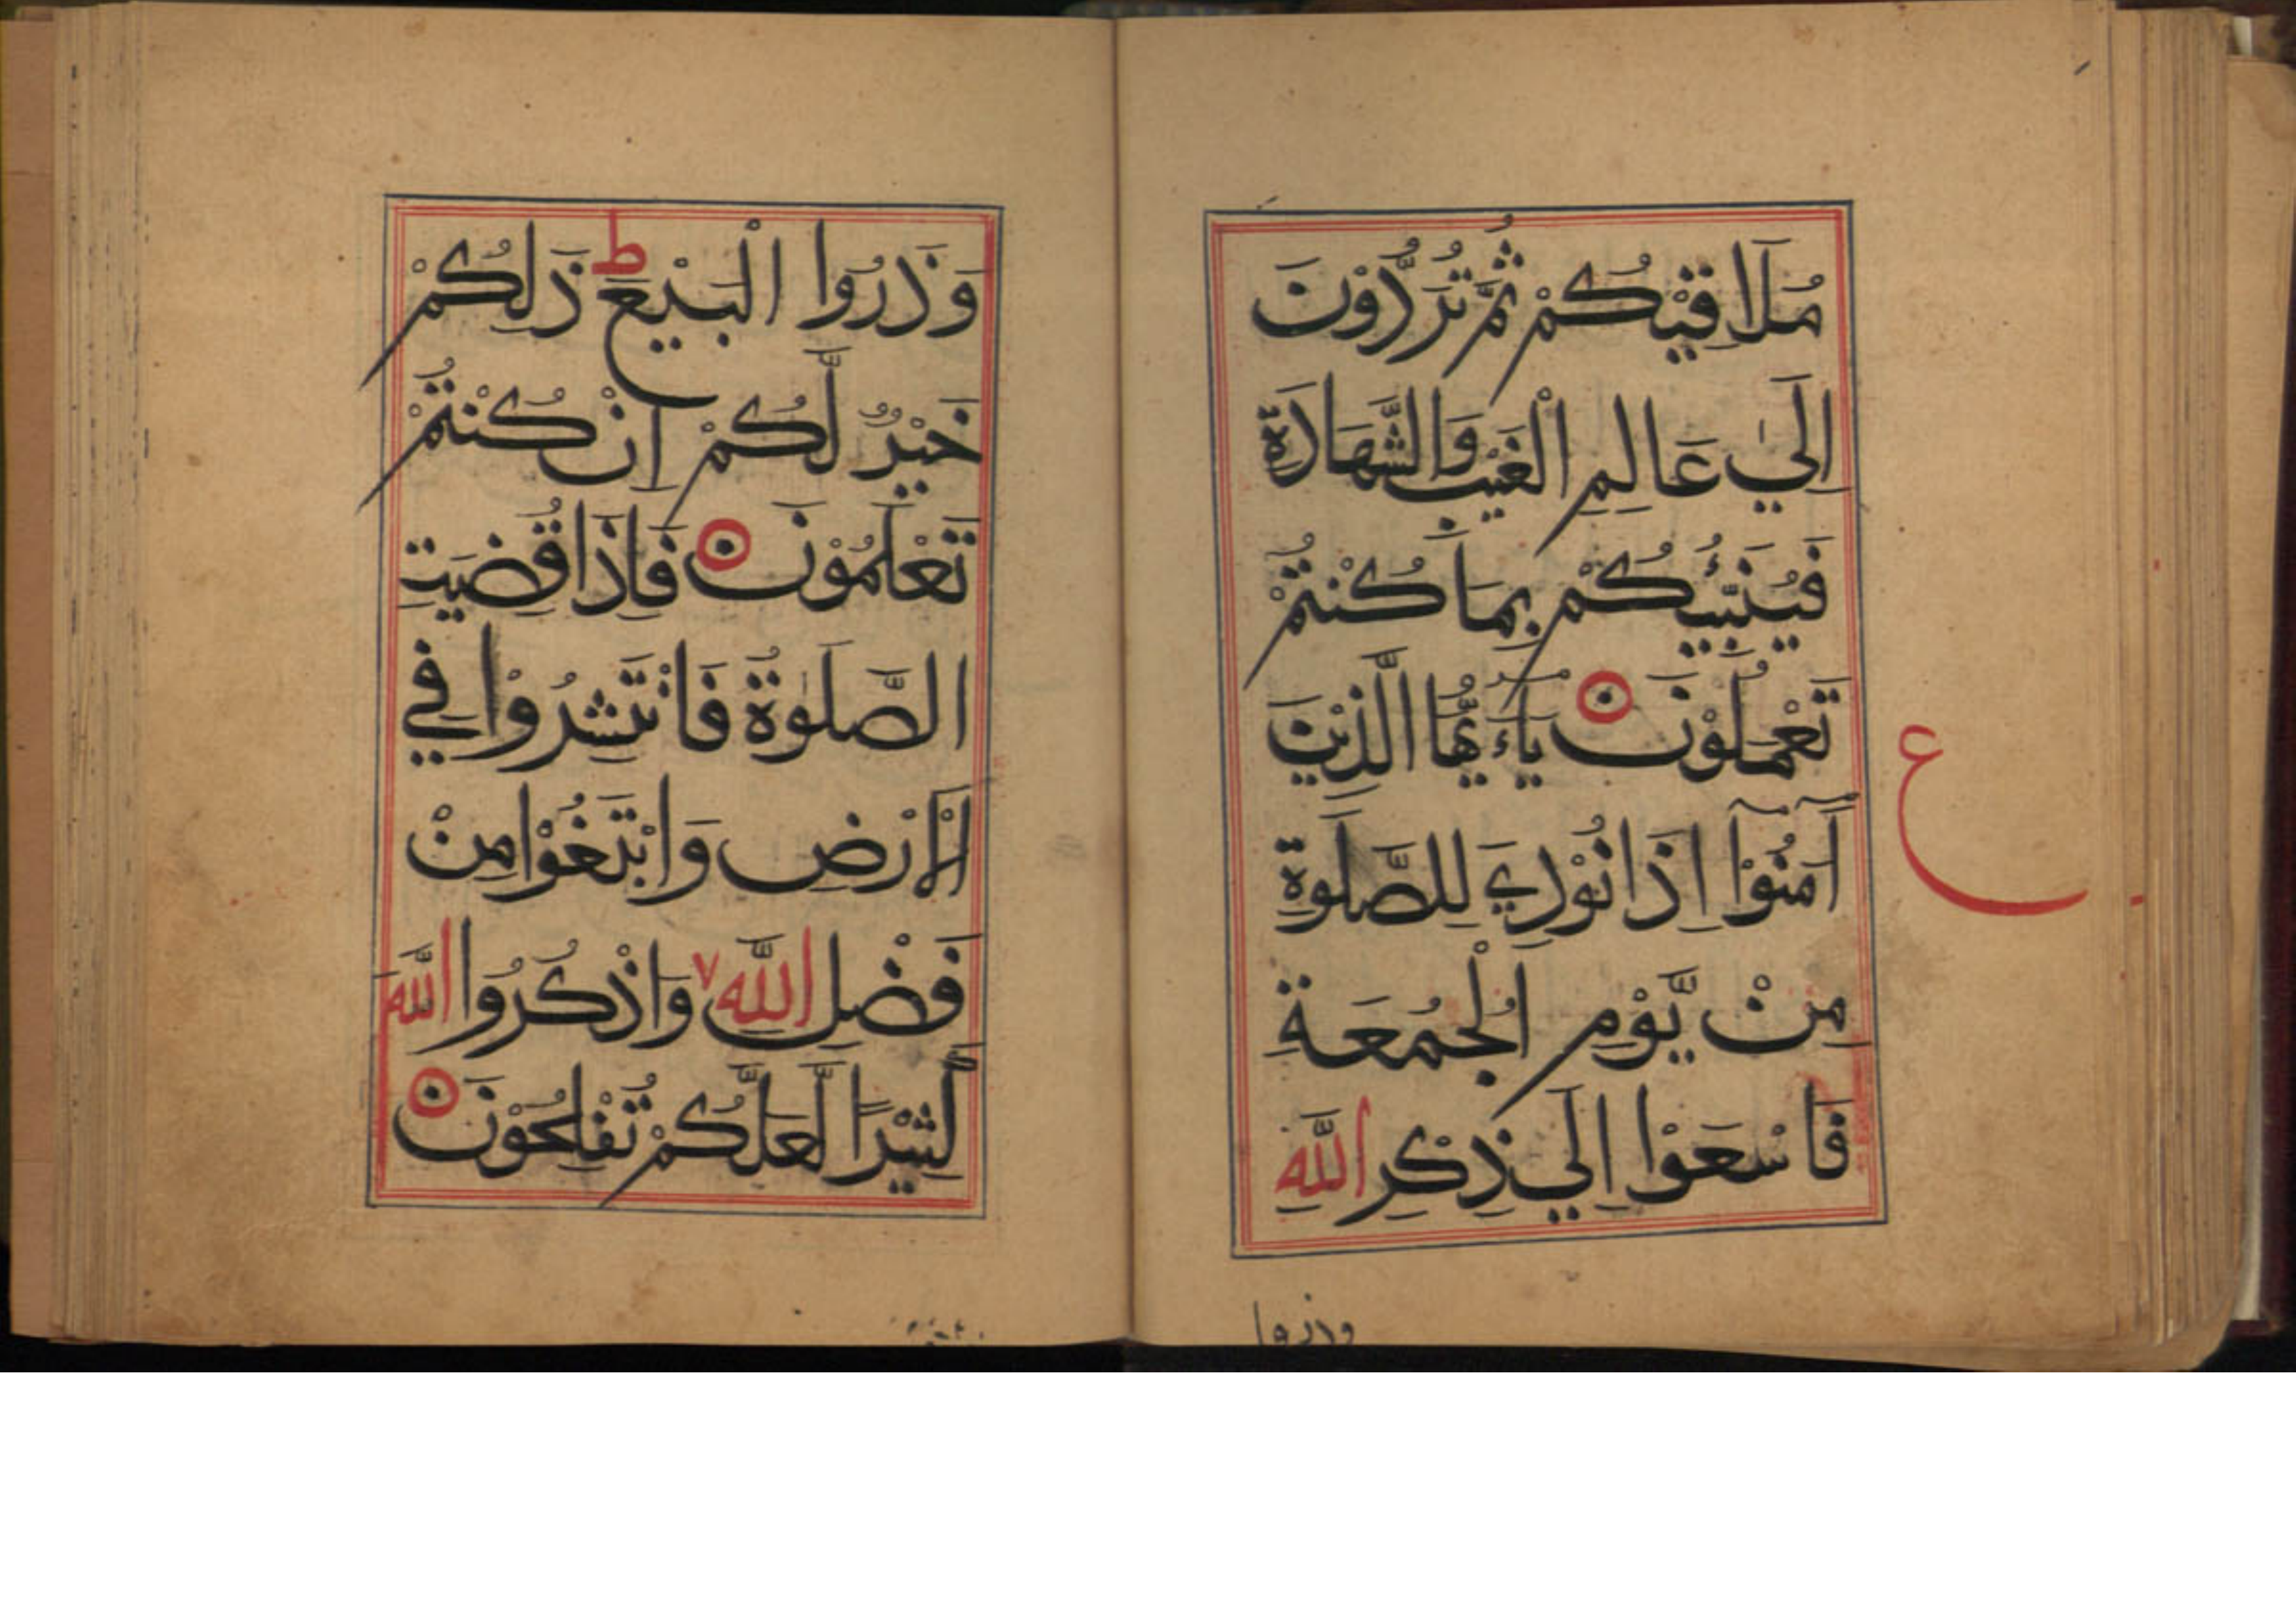 مُلَاقِيْكُمْ ثُمَّ تُرَدُّوْنَ
اِلَىٰ عَالِمِ الْغَيْبِ وَالشَّهَادَةِ
فَيُنَبِّئُكُمْ بِمَا كُنْتُمْ
تَعْمَلُوْنَ يَاءَيُّهَا الَّذِيْنَ
آمَنُوْٓا اِذَا نُوْدِيَ لِلصَّلَوةِ
مِنْ يَّوْمِ الْجُمُعَةِ
فَاسْعَوْا اِلَي ذِكْرِ اللَّهِ
ع
وذروا
وَذَرُوا الْبَيْعَ ط ذَلِكُمْ
خَيْرٌ لَّكُمْ اِنْ كُنْتُمْ
تَعْلَمُوْنَ فَاِذَا قُضِيَتِ
الصَّلَوٰةُ فَانْتَشِرُوْا فِي
الْاَرْضِ وَابْتَغُوْا مِنْ
فَضْلِ اللَّهِ وَاذْكُرُوا اللَّهَ
كَثِيْرًا لَّعَلَّكُمْ تُفْلِحُوْنَ